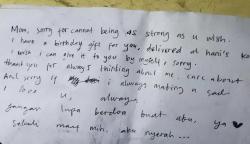 Mom, sorry for cannot being as strong as u wish.
i have a birthday gift for you, delivered at hani's
i wish i can give it to you by myself, sorry.
thank you for always thinking about me, care about
And sorry if i always making u sad
i love u, always
Jangan lupa berdoa buat aku, ya ♥
Sekali maaf mih, aku nyerah...